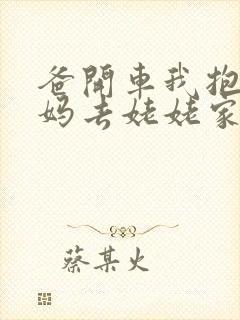 爸開車我抱
妈去姥姥家
蔡某火